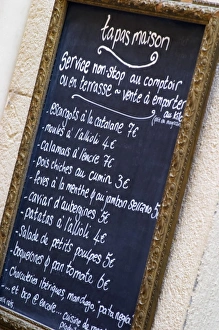 tapas maison
Service non-stop au comptoir
ou en terrasse ~ vente à emporter
au kilo
- escargots à la catalane 7€
- moules à l'aïoli 4€
- calamars à l'encre 7€
- pois chiches au cumin 3€
- fèves à la menthe & au jambon serrano 5
- caviar d'aubergines 5€
- patatas à l'aïoli 4€
- Salade de petits poulpes 5€
- boquerones & pan tomate 6€
- Charcuteries ibériques, pata negra
... et